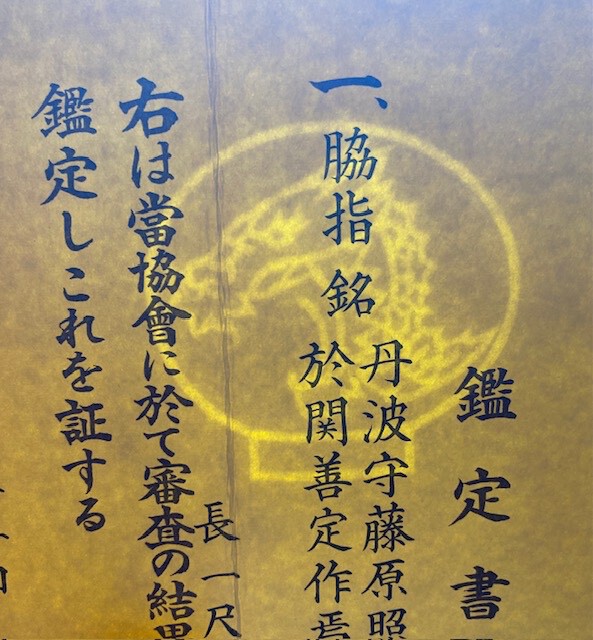 鑑定書
一、脇指 銘
丹波守藤原照
於関善定作焉
長一尺
右は當協會に於て審査の結果
鑑定しこれを証する